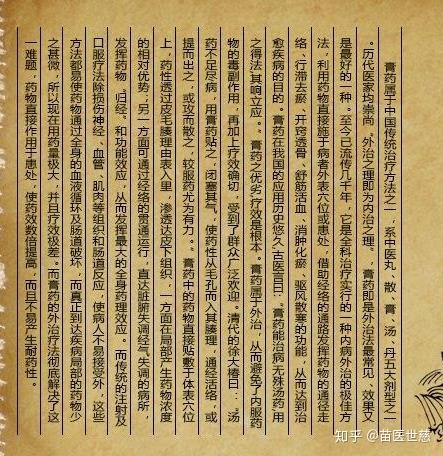 膏药属于中国传统治疗方法之一，系中医丸、散、膏、汤、丹五大剂型之一
。历代医家均崇尚。外治之理即为内治之理。，膏药即是外治法最常见、效果又
是最好的一种。至今已流传几千年，它是全科治疗实行的一种内病外治的极佳方
法，利用药物直接施于病者外表穴位或患处，借助经络的通路发挥药物的通径走
络、行滞去瘀、开窍透骨、舒筋活血、消肿化瘀、驱风散寒的功能，从而达到治
愈疾病的目的。膏药在我国的应用历史悠久,古医言曰:。膏药能治病,无殊汤药,用
之得法,其响立应。。膏药之优劣疗效是根本。膏药属于外治，从而避免了内服药
物的毒副作用，再加上疗效确切，受到了群众广泛欢迎。清代的徐大椿曰:。汤
药不足尽病，用膏药贴之，闭塞其气，使药性从毛孔而入其腠理，通经活络，或
提而出之，或攻而散之，较服药尤为有力。。膏药中的药物直接贴敷于体表穴位
上，药性透过皮毛腠理由表入里，渗透达皮下组织，一方面在局部产生药物浓度
的相对优势；另一方面可通过经络的贯通运行，直达脏腑失调经气失调的病所，
发挥药物。归经。和功能效应，从而发挥最大的全身药理效应。而传统的注射及
口服疗法除损伤神经、血管、肌肉等组织和肠道反应，使病人不易接受外，这些
方法都易使药物通过全身的血液循环及肠道破坏，而真正到达疾病局部的药物少
之甚微，所以现在用药量极大，并且疗效极差。而膏药的外治疗法彻底解决了这
一难题，药物直接作用于患处，使药效数倍提高，而且不易产生耐药性。
知乎 @苗医世慈